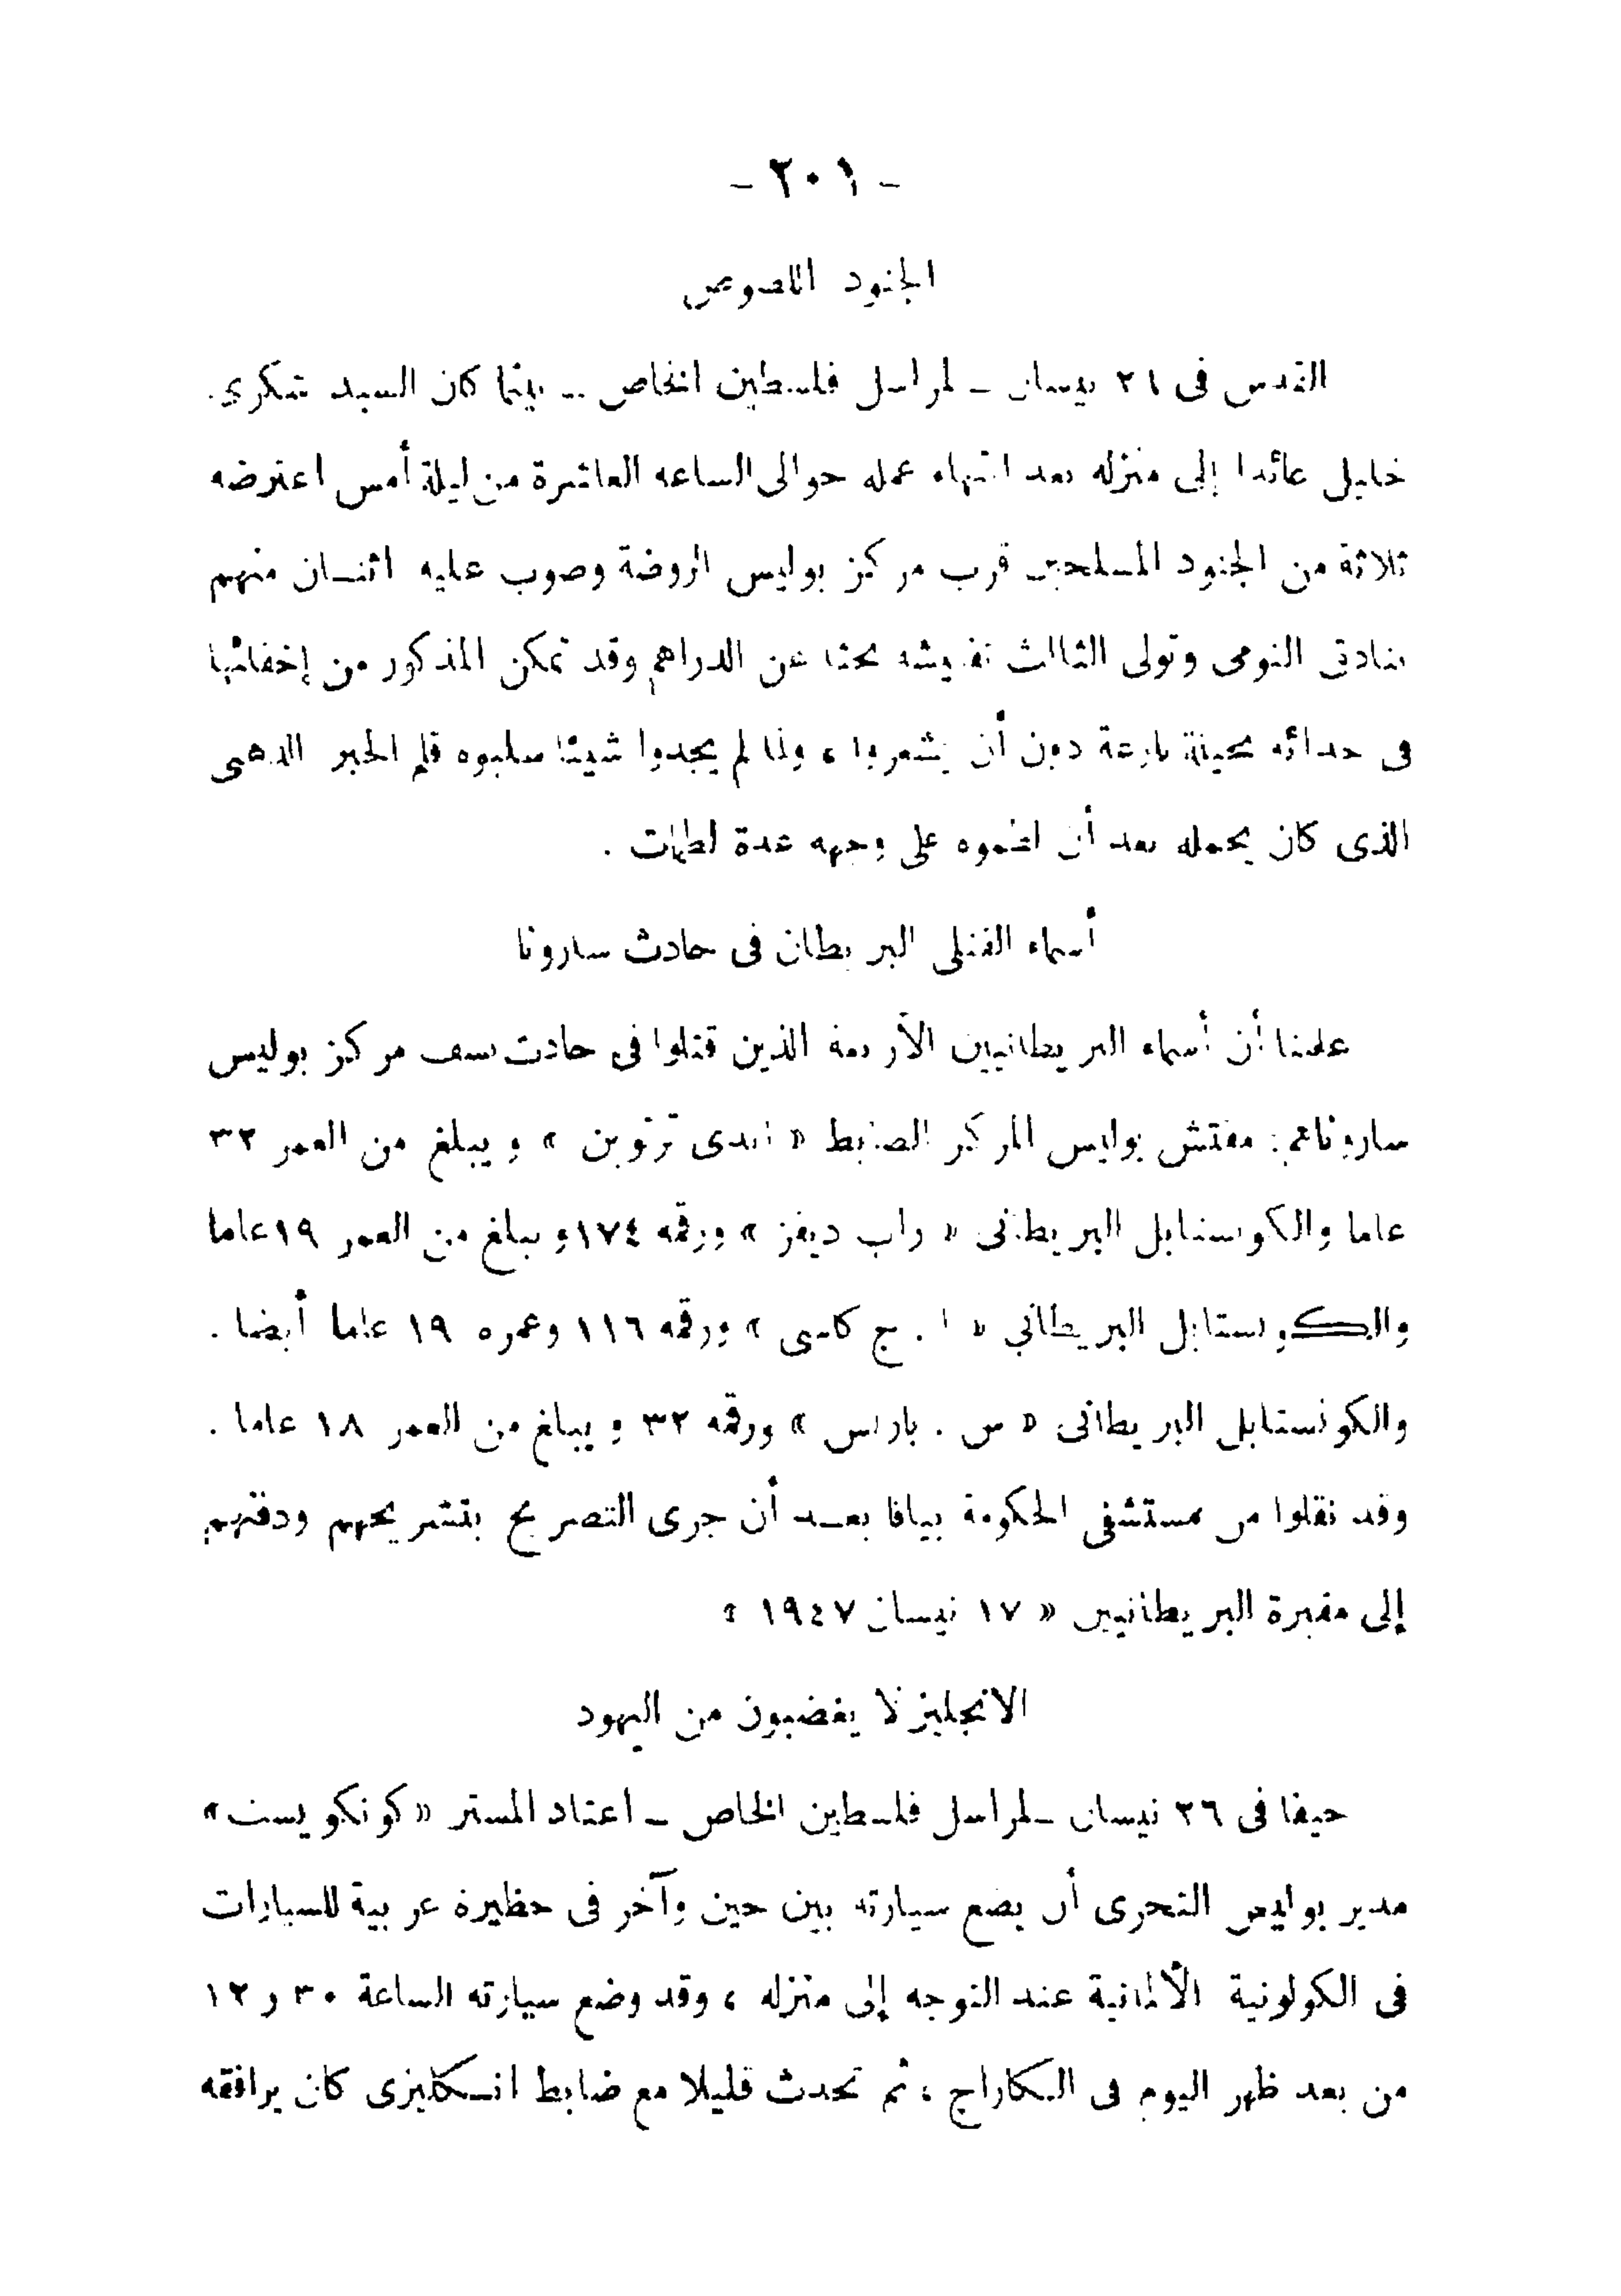 - ٢٠١ -
الجنود اللصوص
القدس فى ٢١ نيسان ـ لمراسل فلسطين الخاص ـ بينما كان السيد شكرى
خليل عائدا إلى منزله بعد انتهاء عمله حوالى الساعه العاشرة من ليلة أمس اعترضه
ثلاثة من الجنود المسلحين قرب مركز بوليس الروضة وصوب عليه اثنـان منهم
بنادق التومى وتولى الثالث تفتيشه بحثا عن الدراهم وقد تمكن المذكور من إخفائها
فى حذائه بحيلة بارعة دون أن يشعروا ، ولما لم يجدوا شيئا سلبوه قلم الحبر الذهبى
الذى كان يحمله بعد أن لطموه على وجهه عدة لطمات .
أسماء القتلى البريطان فى حادث سارونا
علمنا أن أسماء البريطانيين الأربعة الذين قتلوا فى حادث نسف مركز بوليس
ساروناهم : مفتش بوليس المركز الضابط « اندى ترتوين » ويبلغ من العمر ٣٢
عاما والكونستابل البريطانى « راب ديفز » ورقمه ١٧٤ ويبلغ من العمر ١٩ عاما
والكونستابل البريطاني « ا . ج كاسى » ورقمه ١١٦ وعمره ١٩ عاما أيضا .
والكونستابل البريطانى « س . بارنس » ورقمه ٣٢ ويبلغ من العمر ١٨ عاما .
وقد نقلوا من مستشفى الحكومة بيافا بعـد أن جرى التصريح بتشريحهم ودفنهم
إلى مقبرة البريطانيين « ١٧ نيسان ١٩٤٧ »
الانجليز لا يغضبون من اليهود
حيفا فى ٢٦ نيسان ـ لمراسل فلسطين الخاص ـ اعتاد المستر « كونكويست »
مدير بوليس التحرى أن يضع سيارته بين حين وآخر فى حظيرة عربية للسيارات
فى الكولونية الألمانية عند التوجه إلى منزله ، وقد وضع سيارته الساعة ٣٠ ر ١٢
من بعد ظهر اليوم فى الكاراج ، ثم تحدث قليلا مع ضابط انـكليزى كان يرافقه